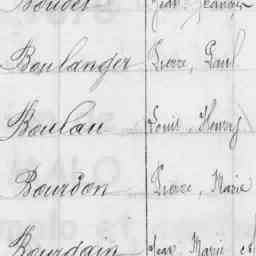 Boudet Jean
Boulanger Pierre, Paul
Boulau Louis, Henry
Bourdon Pierre, Marie
Bourgain Jean, Marie